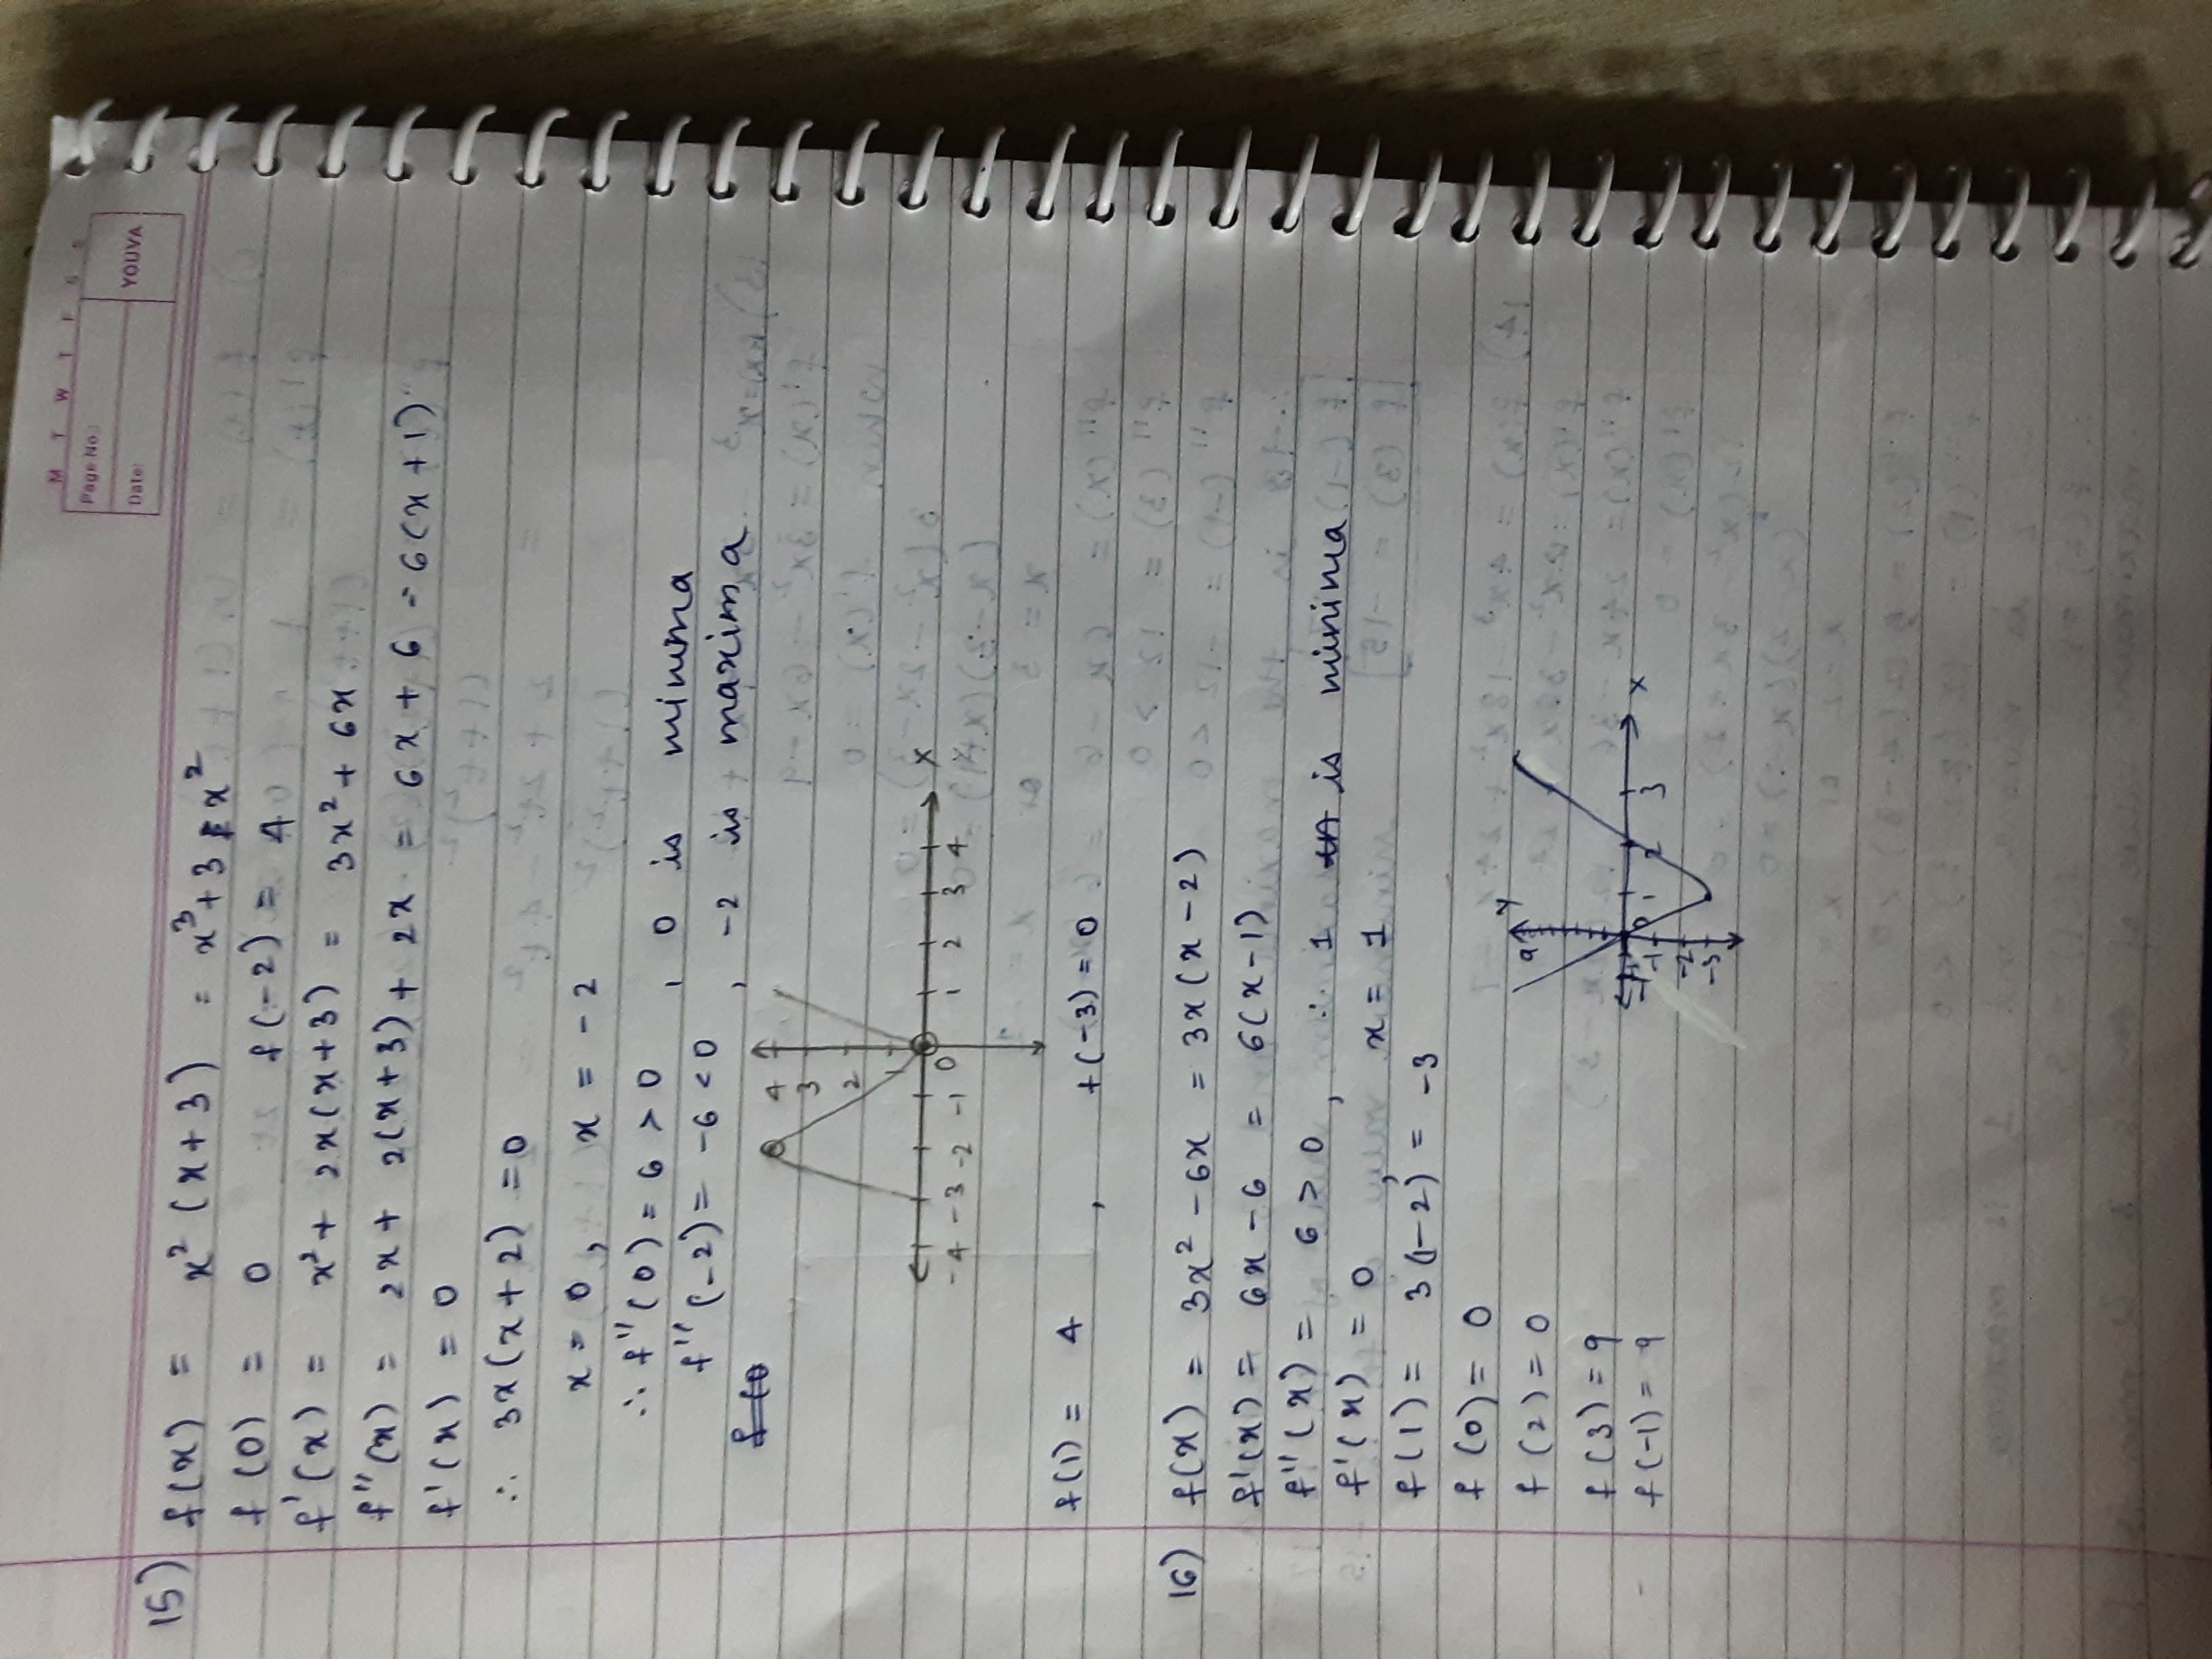 M T W T F S S
Page No.:
Date:
YOUVA
15) f(x) = x² (x+3) = x³+3x²
f(0) = 0 f(-2) = 4
f'(x) = x² + 2x(x+3) = 3x² + 6x
f''(x) = 2x + 2(x+3) + 2x = 6x + 6 = 6(x+1)
f'(x) = 0
∴ 3x(x+2) = 0
x = 0, x = -2
∴ f''(0) = 6 > 0 , 0 is minima
f''(-2) = -6 < 0 , -2 is maxima
4
3
2
1
-4 -3 -2 -1 0 1 2 3 4 x
f(1) = 4 , f(-3) = 0
16) f(x) = 3x² - 6x = 3x(x-2)
f'(x) = 6x - 6 = 6(x-1)
f''(x) = 6 > 0 , ∴ 1 is minima
f'(x) = 0 , x = 1
f(1) = 3(1-2) = -3
f(0) = 0
f(2) = 0
f(3) = 9
f(-1) = 9
9 y
-1 0 1 2 3 x
-1
-2
-3